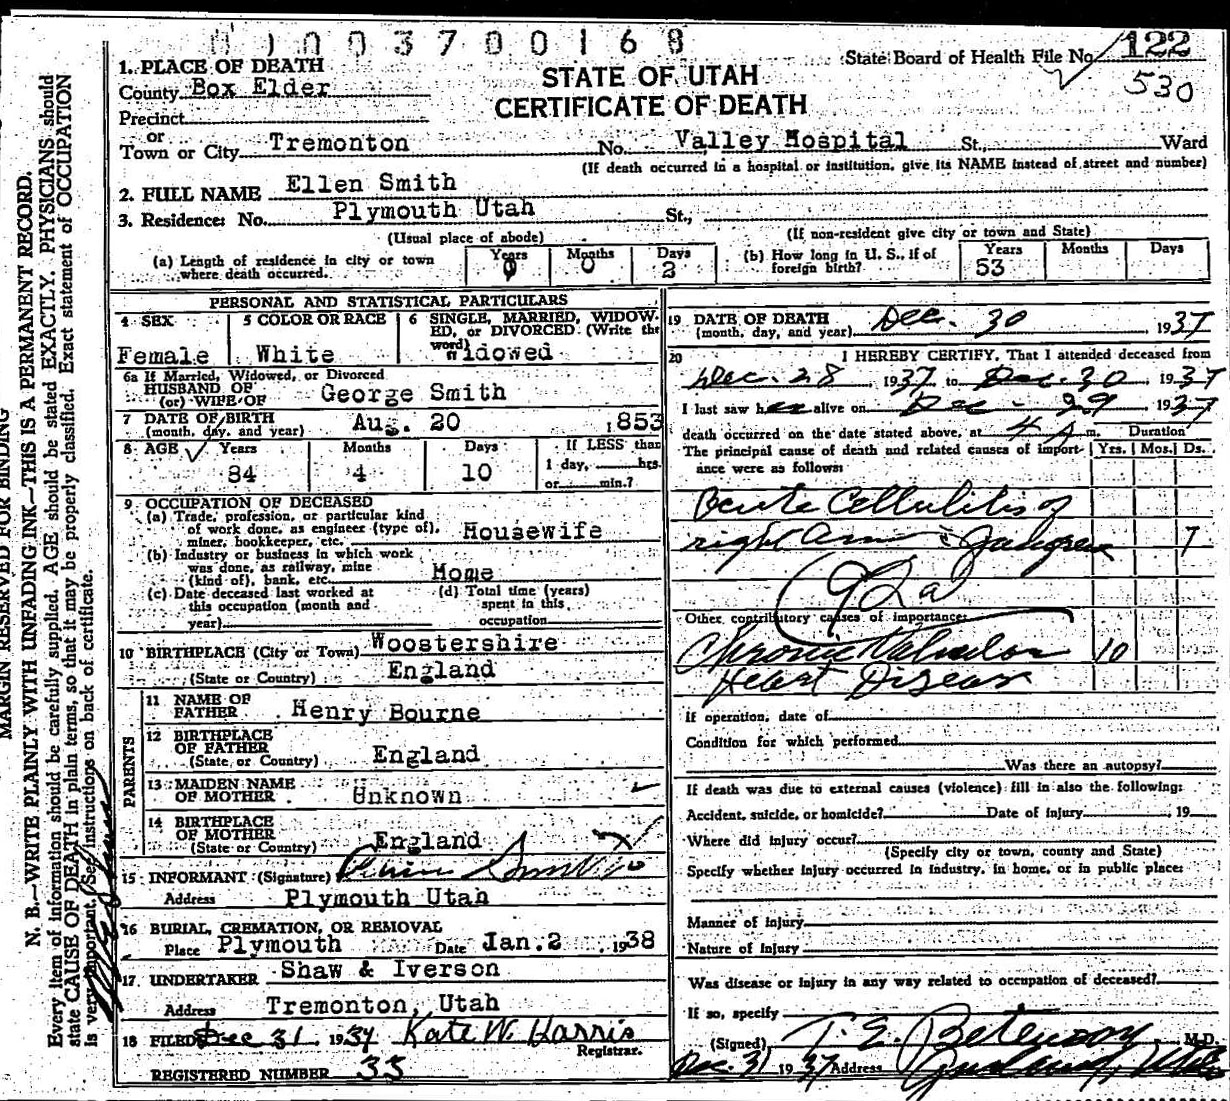 0 1 0 0 3 7 0 0 1 6 8
State Board of Health File No. 122
530
STATE OF UTAH
CERTIFICATE OF DEATH
1. PLACE OF DEATH
County Box Elder
Precinct
or
Town or City Tremonton No. Valley Hospital St., Ward
(If death occurred in a hospital or institution, give its NAME instead of street and number)
2. FULL NAME Ellen Smith
3. Residence: No. Plymouth Utah St.,
(Usual place of abode) (If non-resident give city or town and State)
(a) Length of residence in city or town where death occurred. Years 0 Months 0 Days 2 (b) How long in U. S., if of foreign birth? Years 53 Months Days
PERSONAL AND STATISTICAL PARTICULARS
4 SEX Female
5 COLOR OR RACE White
6 SINGLE, MARRIED, WIDOWED, or DIVORCED (Write the word) Widowed
6a If Married, Widowed, or Divorced
HUSBAND OF
(or) WIFE OF George Smith
7 DATE OF BIRTH
(month, day, and year) Aug. 20 1853
8 AGE Years 84 Months 4 Days 10 If LESS than
1 day, hrs.
or min.?
9 OCCUPATION OF DECEASED
(a) Trade, profession, or particular kind
of work done, as engineer (type of),
miner, bookkeeper, etc. Housewife
(b) Industry or business in which work
was done, as railway, mine
(kind of), bank, etc. Home
(c) Date deceased last worked at
this occupation (month and
year)
(d) Total time (years)
spent in this
occupation
10 BIRTHPLACE (City or Town) Woostershire
(State or Country) England
PARENTS
11 NAME OF
FATHER Henry Bourne
12 BIRTHPLACE
OF FATHER
(State or Country) England
13 MAIDEN NAME
OF MOTHER Unknown
14 BIRTHPLACE
OF MOTHER
(State or Country) England
15 INFORMANT (Signature) Smith
Address Plymouth Utah
16 BURIAL, CREMATION, OR REMOVAL
Place Plymouth Date Jan. 2 1938
17 UNDERTAKER Shaw & Iverson
Address Tremonton, Utah
18 FILED Dec 31 1937 Kate W. Harris
Registrar.
REGISTERED NUMBER 33
19 DATE OF DEATH
(month, day, and year) Dec. 30 1937
20 I HEREBY CERTIFY, That I attended deceased from
Dec. 28 1937 to Dec. 30 1937
I last saw her alive on Dec - 29 1937
death occurred on the date stated above, at 4 A m. Duration
The principal cause of death and related causes of importance were as follows: Yrs. Mos. Ds.
Acute Cellulitis of
right arm c̄ Gangrene 7
92a
Other contributory causes of importance:
Chronic Valvular 10
Heart Disease
If operation, date of
Condition for which performed
Was there an autopsy?
If death was due to external causes (violence) fill in also the following:
Accident, suicide, or homicide? Date of injury , 19
Where did injury occur?
(Specify city or town, county and State)
Specify whether injury occurred in industry, in home, or in public place:
Manner of injury
Nature of injury
Was disease or injury in any way related to occupation of deceased?
If so, specify
(Signed) T. E. Betenson M.D.
Dec. 31 1937 Address Garland, Utah
MARGIN RESERVED FOR BINDING
N. B.—WRITE PLAINLY WITH UNFADING INK—THIS IS A PERMANENT RECORD.
Every item of information should be carefully supplied. AGE should be stated EXACTLY. PHYSICIANS should
state CAUSE OF DEATH in plain terms, so that it may be properly classified. Exact statement of OCCUPATION
is very important. (See instructions on back of certificate.